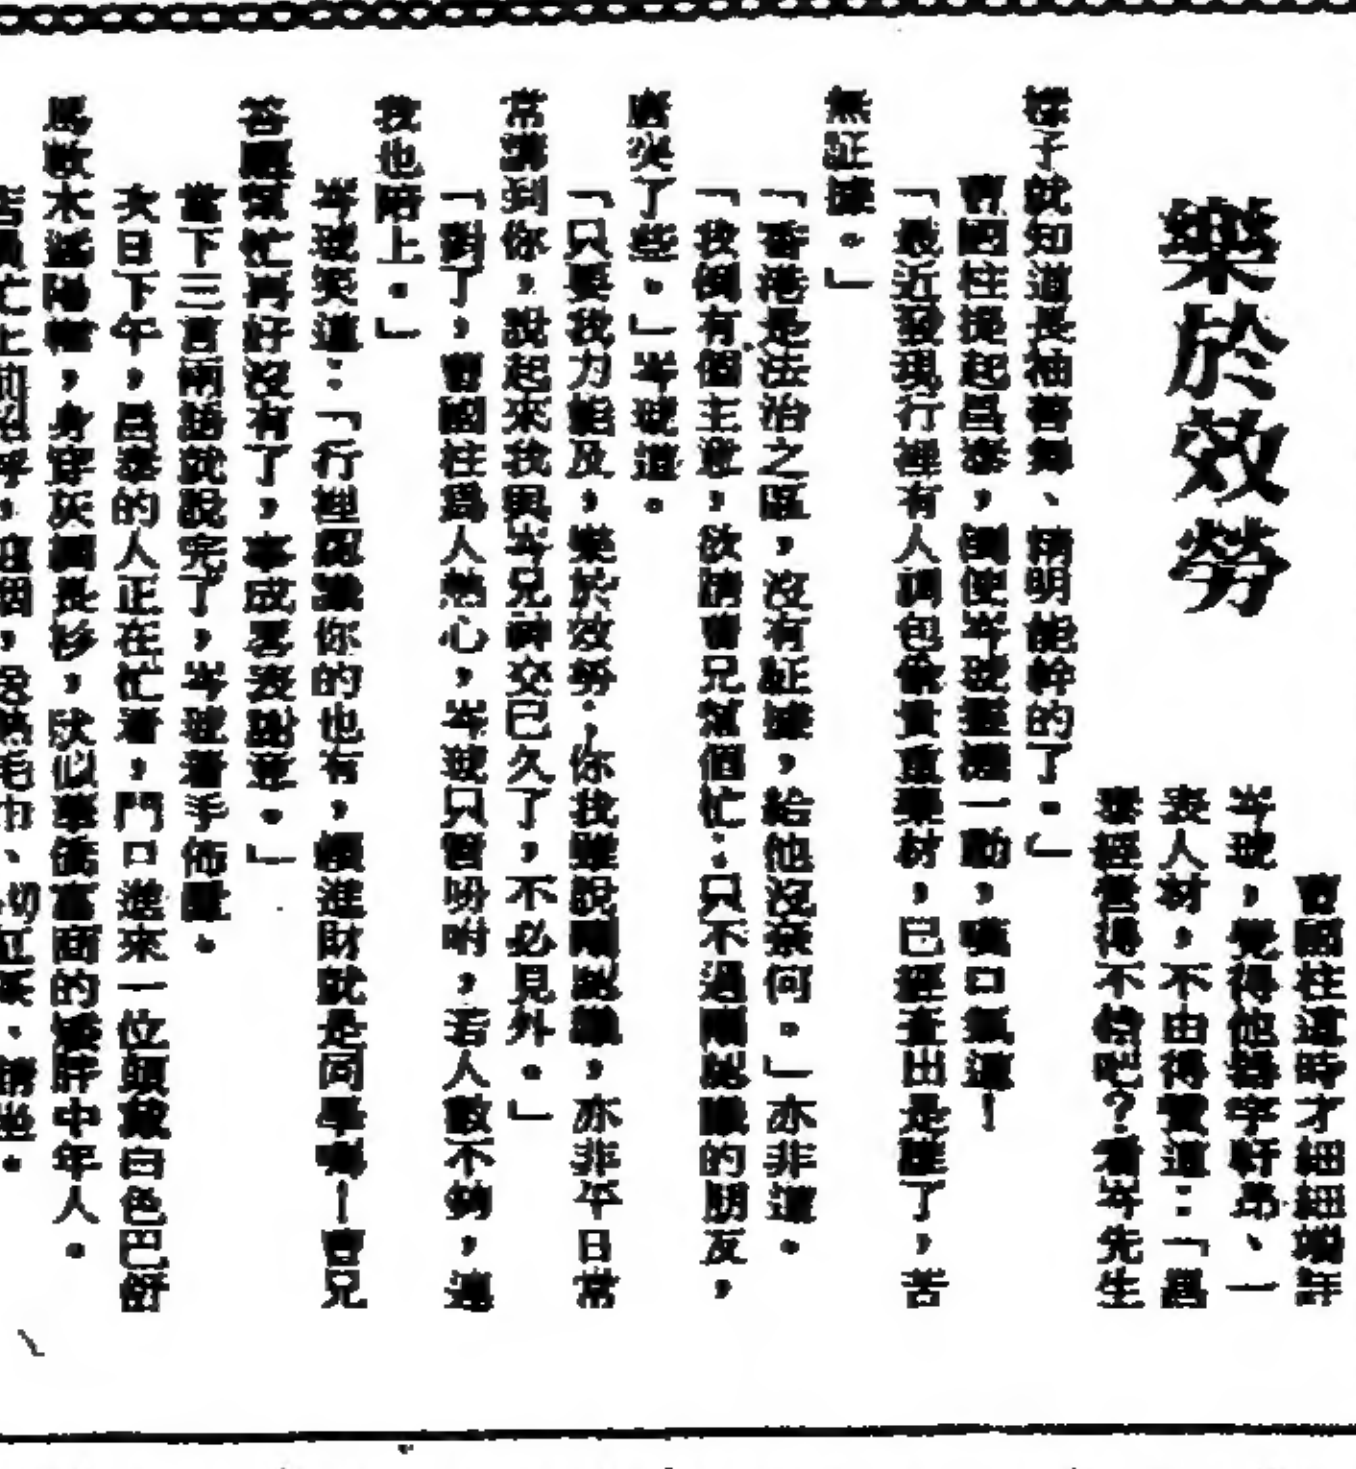 樂於效勞
曹國柱這時才細細端詳
岑琥，覺得他器宇軒昂、一
表人材，不由得贊道：「昌
泰經營得不錯吧？看岑先生
樣子就知道長袖善舞、精明能幹的了。」
曹國柱提起昌泰，倒使岑琥靈機一動，嘆口氣道！
「最近發現行裡有人調包偷貴重藥材，已經查出是誰了，苦
無証據。」
「香港是法治之區，沒有証據，給他沒奈何。」亦非道。
「我倒有個主意，欲請曹兄幫個忙．只不過剛認識的朋友，
唐突了些。」岑琥道。
「只要我力能及，樂於效勞．，你我雖說剛認識，亦非平日常
常講到你，說起來我與岑兄神交已久了，不必見外。」
「對了，曹國柱爲人熱心，岑琥只管吩咐，若人數不夠，連
我也陪上。」
岑琥笑道：「行裡認識你的也有，頓進財就是同學嘛！曹兄
答應幫忙再好沒有了，事成畧表謝意。」
當下三言兩語就說完了，岑琥着手佈置。
次日下午，昌泰的人正在忙着，門口進來一位頭戴白色巴
馬軟木遮陽帽，身穿灰綢長衫，狀似華僑富商的矮胖中年人。
店員忙上前招呼，